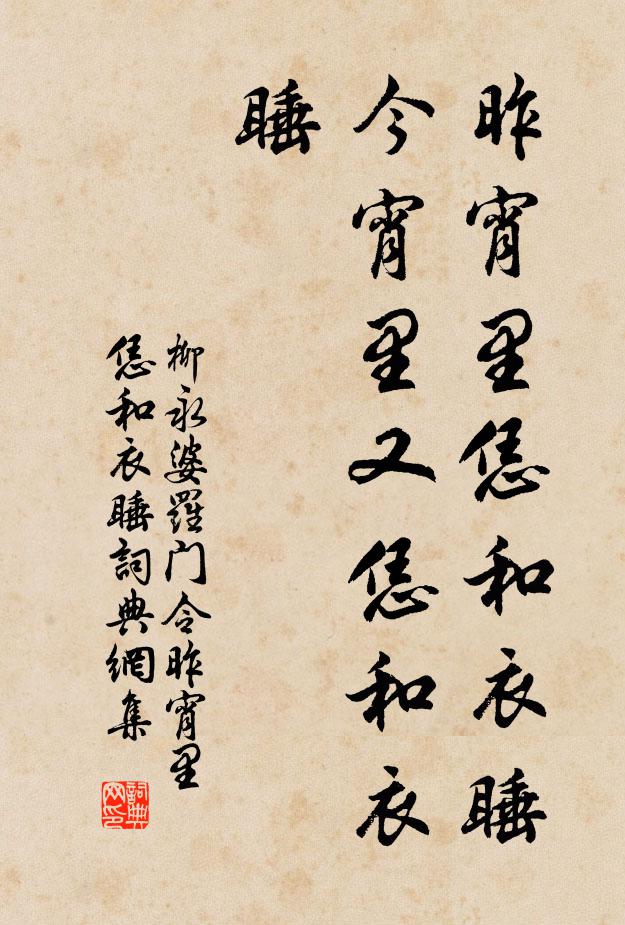 昨宵里恁和衣睡
今宵里又恁和衣
睡
柳永婆羅门令昨宵里
恁和衣睡詞典網集
詞典
网印